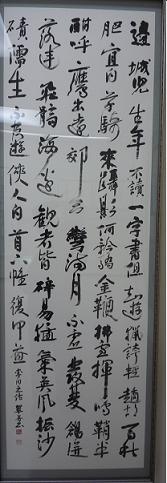 邊城兒生年不讀一字書但知遊獵誇輕趫胡馬秋
肥宜白草騎來躡影何矜驕金鞭拂雪揮鳴鞘半
酣呼鷹出遠郊弓彎滿月不虛發雙鶬迸
落連飛髇海邊觀者皆辟易猛氣英風振沙
磧儒生不及遊俠人白首下帷復何益